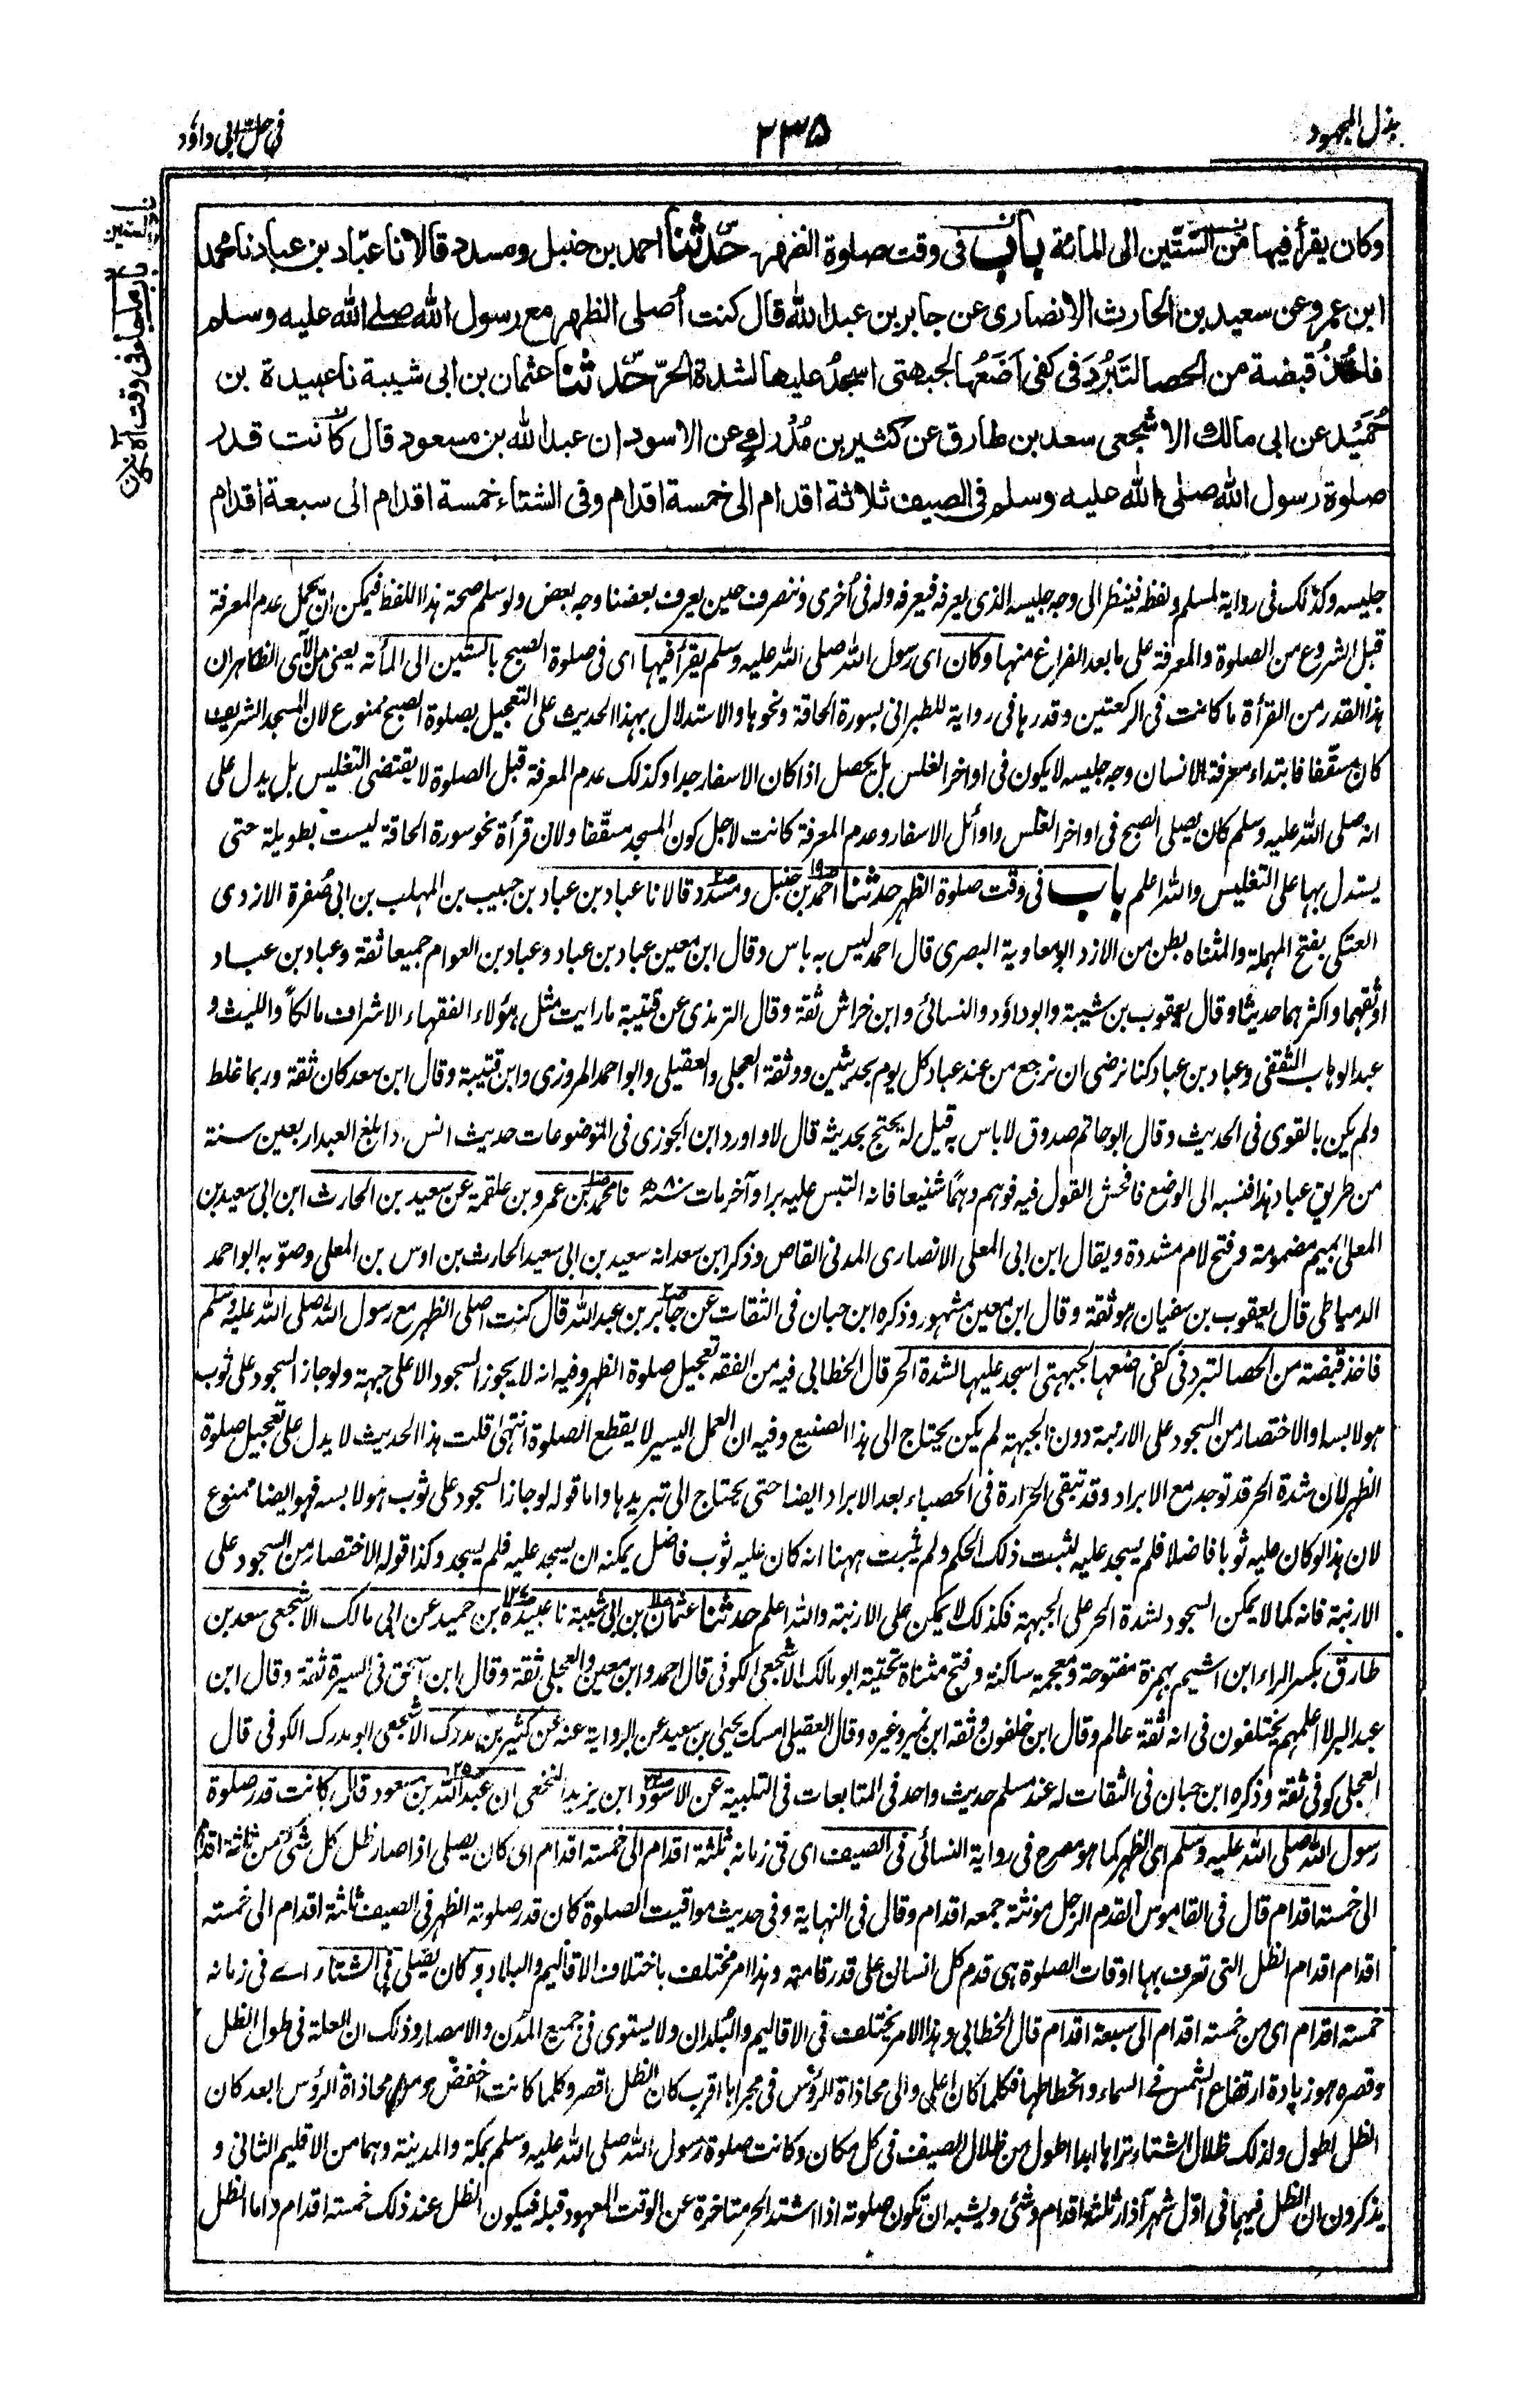 بذل المجهود
٢٣٥
في حل ابي داؤد
وكان يقرأ فيها من الستين الى المائة باب في وقت صلوة الظهر حدثنا احمد بن حنبل ومسدد قالا نا عباد بن عباد نا محمد
ابن عمرو عن سعيد بن الحارث الانصارى عن جابر بن عبد الله قال كنت أصلى الظهر مع رسول الله صلى الله عليه وسلم
فاخذ قبضة من الحصا لتَبْرُدَ فى كفى اَضَعُها لجبهتى اسجدُ عليها لشدة الحرّ حدثنا عثمان بن ابى شيبة نا عبيدة بن
حُمَيْد عن ابى مالك الاشجعى سعد بن طارق عن كثير بن مُدْرِك عن الاسود ان عبد الله بن مسعود قال كانت قدر
صلوة رسول الله صلى الله عليه وسلم فى الصيف ثلاثة اقدام الى خمسة اقدام وفى الشتاء خمسة اقدام الى سبعة اقدام
جليسه وكذلك فى رواية لمسلم ولفظه فينظر الى وجه جليسه الذى يعرفه فيعرفه وله فى أخرى وننصرف حين يعرف بعضنا وجه بعض ولو سلم صحة هذا اللفظ فيمكن ان يحمل عدم المعرفة
قبل الشروع من الصلوة والمعرفة على ما بعد الفراغ منها وكان اى رسول الله صلى الله عليه وسلم يقرأ فيها اى فى صلوة الصبح بالستين الى المأئة يعنى من الآى الظاهر ان
هذا القدر من القرأة ما كانت فى الركعتين وقدرها فى رواية للطبرانى بسورة الحاقة ونحوها والاستدلال بهذا الحديث على التعجيل بصلوة الصبح ممنوع لان المسجد الشريف
كان مسقفا فابتداء معرفة الانسان وجه جليسه لا يكون فى اواخر الغلس بل يحصل اذا كان الاسفار جدا وكذلك عدم المعرفة قبل الصلوة لا يقتضى التغليس بل يدل على
انه صلى الله عليه وسلم كان يصلى الصبح فى اواخر الغلس واوائل الاسفار وعدم المعرفة كانت لاجل كون المسجد مسقفا ولان قرأة نحو سورة الحاقة ليست بطويلة حتى
يستدل بها على التغليس والله اعلم باب فى وقت صلوة الظهر حدثنا احمد بن حنبل ومسدد قالا نا عباد بن عباد بن حبيب بن المهلب بن ابى صُفرة الازدى
العتكى بفتح المهملة والمثناه بطن من الازد ابو معاوية البصرى قال احمد ليس به باس وقال ابن معين عباد بن عباد وعباد بن العوام جميعا ثقة وعباد بن عباد
اوثقهما واكثرهما حديثا وقال يعقوب بن شيبة وابو داؤد والنسائى وابن خراش ثقة وقال الترمذى عن قتيبة ما رايت مثل هؤلاء الفقهاء الاشراف مالكاً والليث و
عبد الوهاب الثقفى وعباد بن عباد كنا نرضى ان نرجع من عند عباد كل يوم بحديثين ووثقة العجلى والعقيلى وابو احمد المروزى وابن قتيبة وقال ابن سعد كان ثقة وربما غلط
ولم يكن بالقوى فى الحديث وقال ابو حاتم صدوق لا باس به قيل له يحتج بحديثه قال لا واورد ابن الجوزى فى الموضوعات حديث انس اذا بلغ العبد اربعين سنة
من طريق عباد هذا فنسبه الى الوضع فافحش القول فيه فوهم وهمًا شنيعا فانه التبس عليه براو آخر مات سنة ١٨٠ نا محمد بن عمرو بن علقمة عن سعيد بن الحارث ابن ابى سعيد بن
المعلى بميم مضمومة وفتح لام مشددة ويقال ابن ابى المعلى الانصارى المدنى القاص وذكر ابن سعد انه سعيد بن ابى سعيد الحارث بن اوس بن المعلى وصوّبه ابو احمد
الدمياطى قال يعقوب بن سفيان هو ثقة وقال ابن معين مشهور وذكره ابن حبان فى الثقات عن جابر بن عبد الله قال كنت اصلى الظهر مع رسول الله صلى الله عليه وسلم
فاخذ قبضة من الحصا لتبرد فى كفى اضعها لجبهتى اسجد عليها لشدة الحر قال الخطابى فيه من الفقه تعجيل صلوة الظهر وفيه انه لا يجوز السجود الا على جبهة ولو جاز السجود على ثوب
هو لابسه او الاختصار من السجود على الارنبة دون الجبهة لم يكن يحتاج الى هذا الصنيع وفيه ان العمل اليسير لا يقطع الصلوة انتهى قلت هذا الحديث لا يدل على تعجيل صلوة
الظهر لان شدة الحر قد توجد مع الابراد وقد تبقى الحرارة فى الحصباء بعد الابراد ايضا حتى يحتاج الى تبريدها واما قوله لو جاز السجود على ثوب هو لابسه فهو ايضا ممنوع
لان هذا لو كان عليه ثوبا فاضلا فلم يسجد عليه لثبت ذلك الحكم ولم يثبت ههنا انه كان عليه ثوب فاضل يمكنه ان يسجد عليه فلم يسجد وكذا قوله الاختصار من السجود على
الارنبة فانه كما لا يمكن السجود لشدة الحر على الجبهة فكذلك لا يمكن على الارنبة والله اعلم حدثنا عثمان بن ابى شيبة نا عبيدة بن حميد عن ابى مالك الاشجعى سعد بن
طارق بكسر الراء ابن اشيم بهمزة مفتوحة ومعجمة ساكنة وفتح مثناة تحتية ابو مالك الاشجعى الكوفى قال احمد وابن معين والعجلى ثقة وقال ابن اسحق فى السيرة ثقة وقال ابن
عبد البر لا اعلمهم يختلفون فى انه ثقة عالم وقال ابن خلفون وثقه ابن نمير وغيره وقال العقيلى امسك يحيى بن سعيد عن الرواية عنه عن كثير بن مدرك الاشجعى ابو مدرك الكوفى قال
العجلى كوفى ثقة وذكره ابن حبان فى الثقات له عند مسلم حديث واحد فى المتابعات فى التلبية عن الاسود ابن يزيد النخعى ان عبد الله بن مسعود قال كانت قدر صلوة
رسول الله صلى الله عليه وسلم اى الظهر كما هو مصرح فى رواية النسائى فى الصيف اى فى زمانه ثلثة اقدام الى خمسة اقدام اى كان يصلى اذا صار ظل كل شئ من ثلثة اقدام
الى خمسة اقدام قال فى القاموس القدم الرجل مونثة جمعه اقدام وقال فى النهاية وفى حديث مواقيت الصلوة كان قدر صلوته الظهر فى الصيف ثلثة اقدام الى خمسة
اقدام اقدام الظل التى تعرف بها اوقات الصلوة هى قدم كل انسان على قدر قامته وهذا امر مختلف باختلاف الاقاليم والبلاد وكان يصلى فى الشتاء اے فى زمانه
خمسة اقدام اى من خمسة اقدام الى سبعة اقدام قال الخطابى وهذا الامر يختلف فى الاقاليم والبلدان ولا يستوى فى جميع المدن والامصار وذلك ان العلة فى طول الظل
وقصره هو زيادة ارتفاع الشمس فے السماء وانحطاطها فكلما كان اعلى والى محاذاة الرؤس فى مجراها اقرب كان الظل اقصر وكلما كانت اخفض ومن محاذاة الرؤس ابعد كان
الظل اطول ولذلك ظلال الشتاء تراها ابدا اطول من ظلال الصيف فى كل مكان وكانت صلوة رسول الله صلى الله عليه وسلم بمكة والمدينة وهما من الاقليم الثانى و
يذكرون ان الظل فيهما فى اول شهر آذار ثلثة اقدام وشئ ويشبه ان تكون صلوته اذا اشتد الحر متاخرة عن الوقت المعهود قبله فيكون الظل عند ذلك خمسة اقدام واما الظل